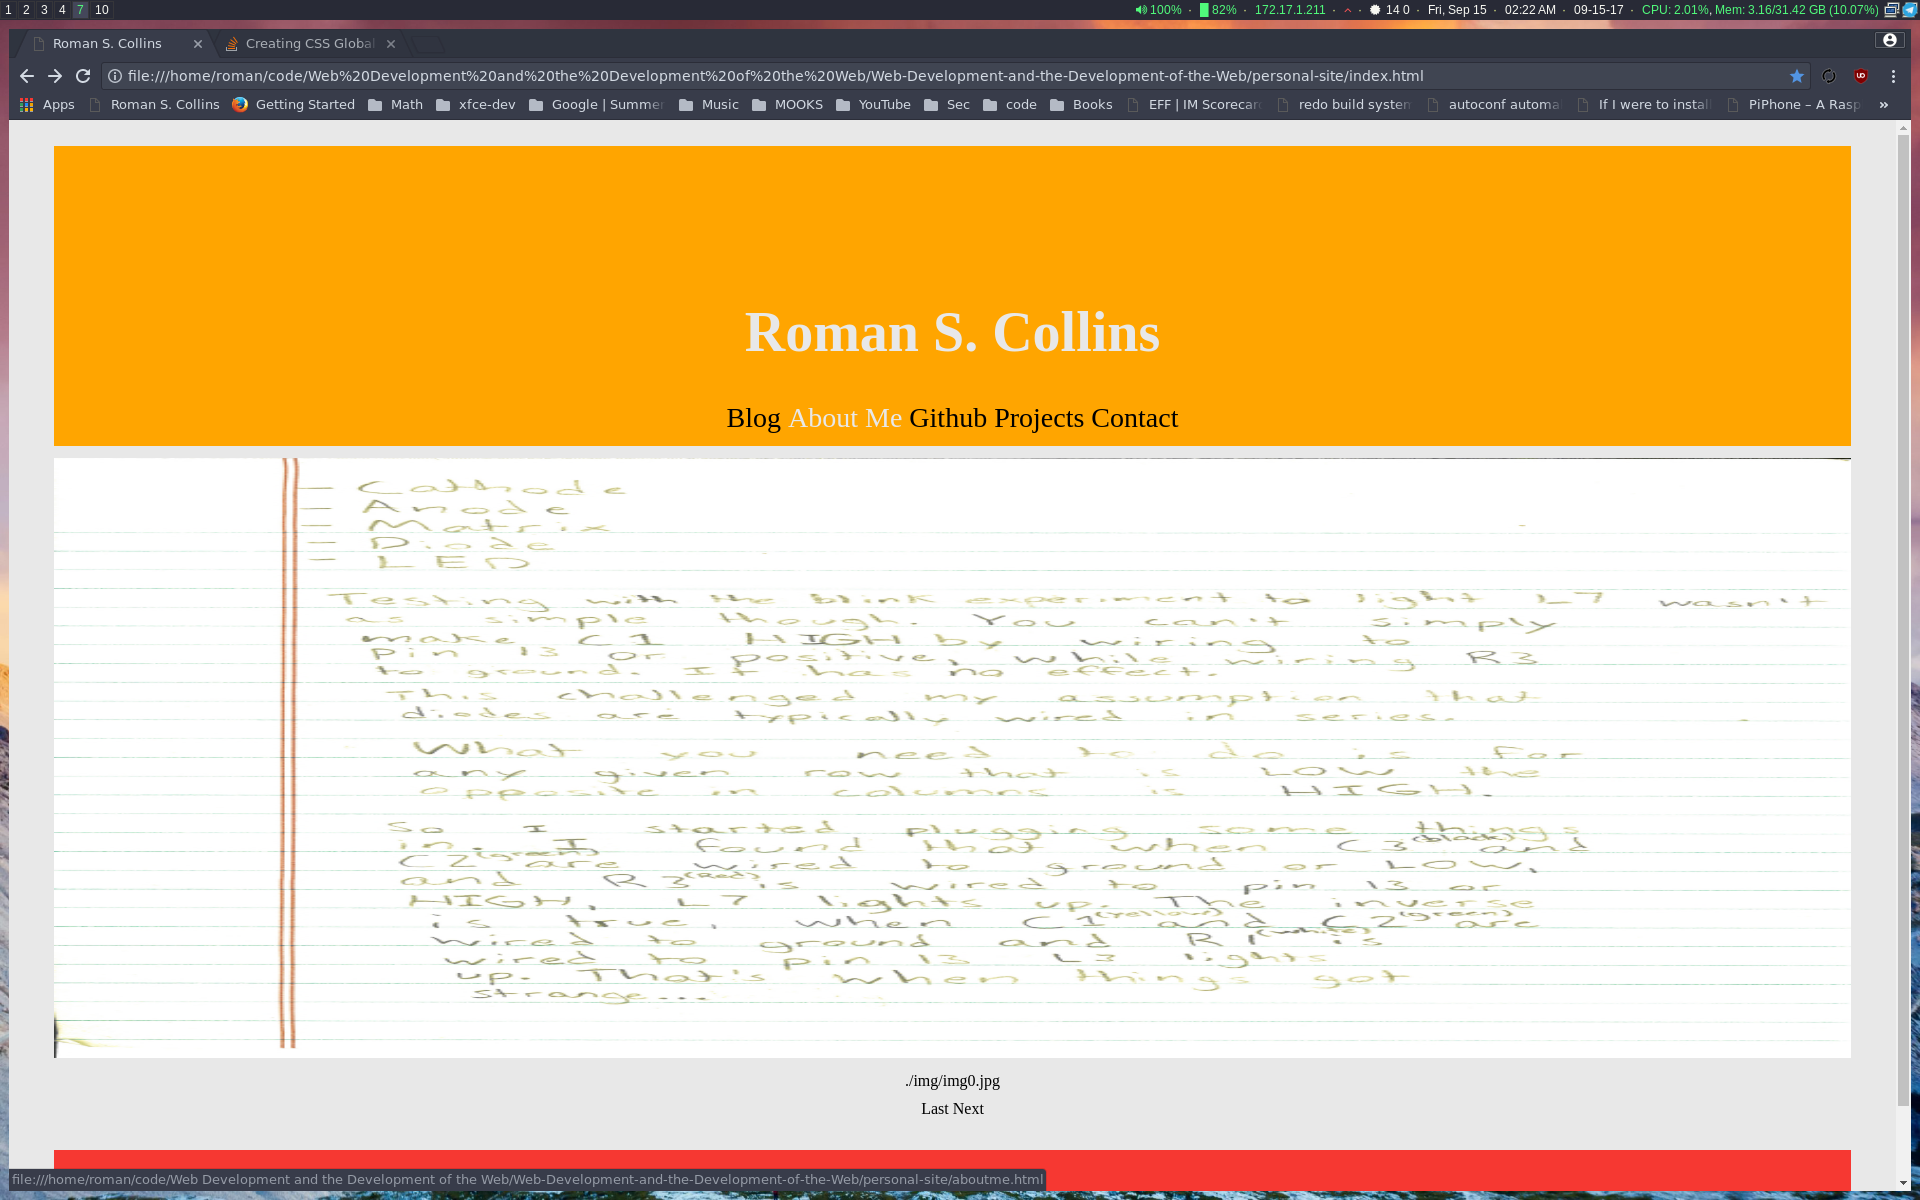 1 2 3 4 7 10 100% · 82% · 172.17.1.211 · · 14 0 · Fri, Sep 15 · 02:22 AM · 09-15-17 · CPU: 2.01%, Mem: 3.16/31.42 GB (10.07%)
Roman S. Collins Creating CSS Global
file:///home/roman/code/Web%20Development%20and%20the%20Development%20of%20the%20Web/Web-Development-and-the-Development-of-the-Web/personal-site/index.html
Apps Roman S. Collins Getting Started Math xfce-dev Google | Summer Music MOOKS YouTube Sec code Books EFF | IM Scorecar redo build system autoconf automa If I were to install PiPhone – A Rasp »
Roman S. Collins
Blog About Me Github Projects Contact
— Cathode
— Anode
— Matrix
— Diode
— LED
Testing with the blink experiment to light L7 wasn't
as simple though. You can't simply
make C1 HIGH by wiring to
pin 13 or positive, while wiring R3
to ground. It has no effect.
This challenged my assumption that
diodes are typically wired in series.
What you need to do is for
any given row that is LOW the
opposite in columns is HIGH.
So I started plugging some things
in. I found that when C3 (black) and
C2 (green) are wired to ground or LOW,
and R3 (Red) is wired to pin 13 or
HIGH, L7 lights up. The inverse
is true, when C1 (yellow) and C2 (green) are
wired to ground and R1 (white) is
wired to pin 13 L3 lights
up. That's when things got
strange...
./img/img0.jpg
Last Next
file:///home/roman/code/Web Development and the Development of the Web/Web-Development-and-the-Development-of-the-Web/personal-site/aboutme.html